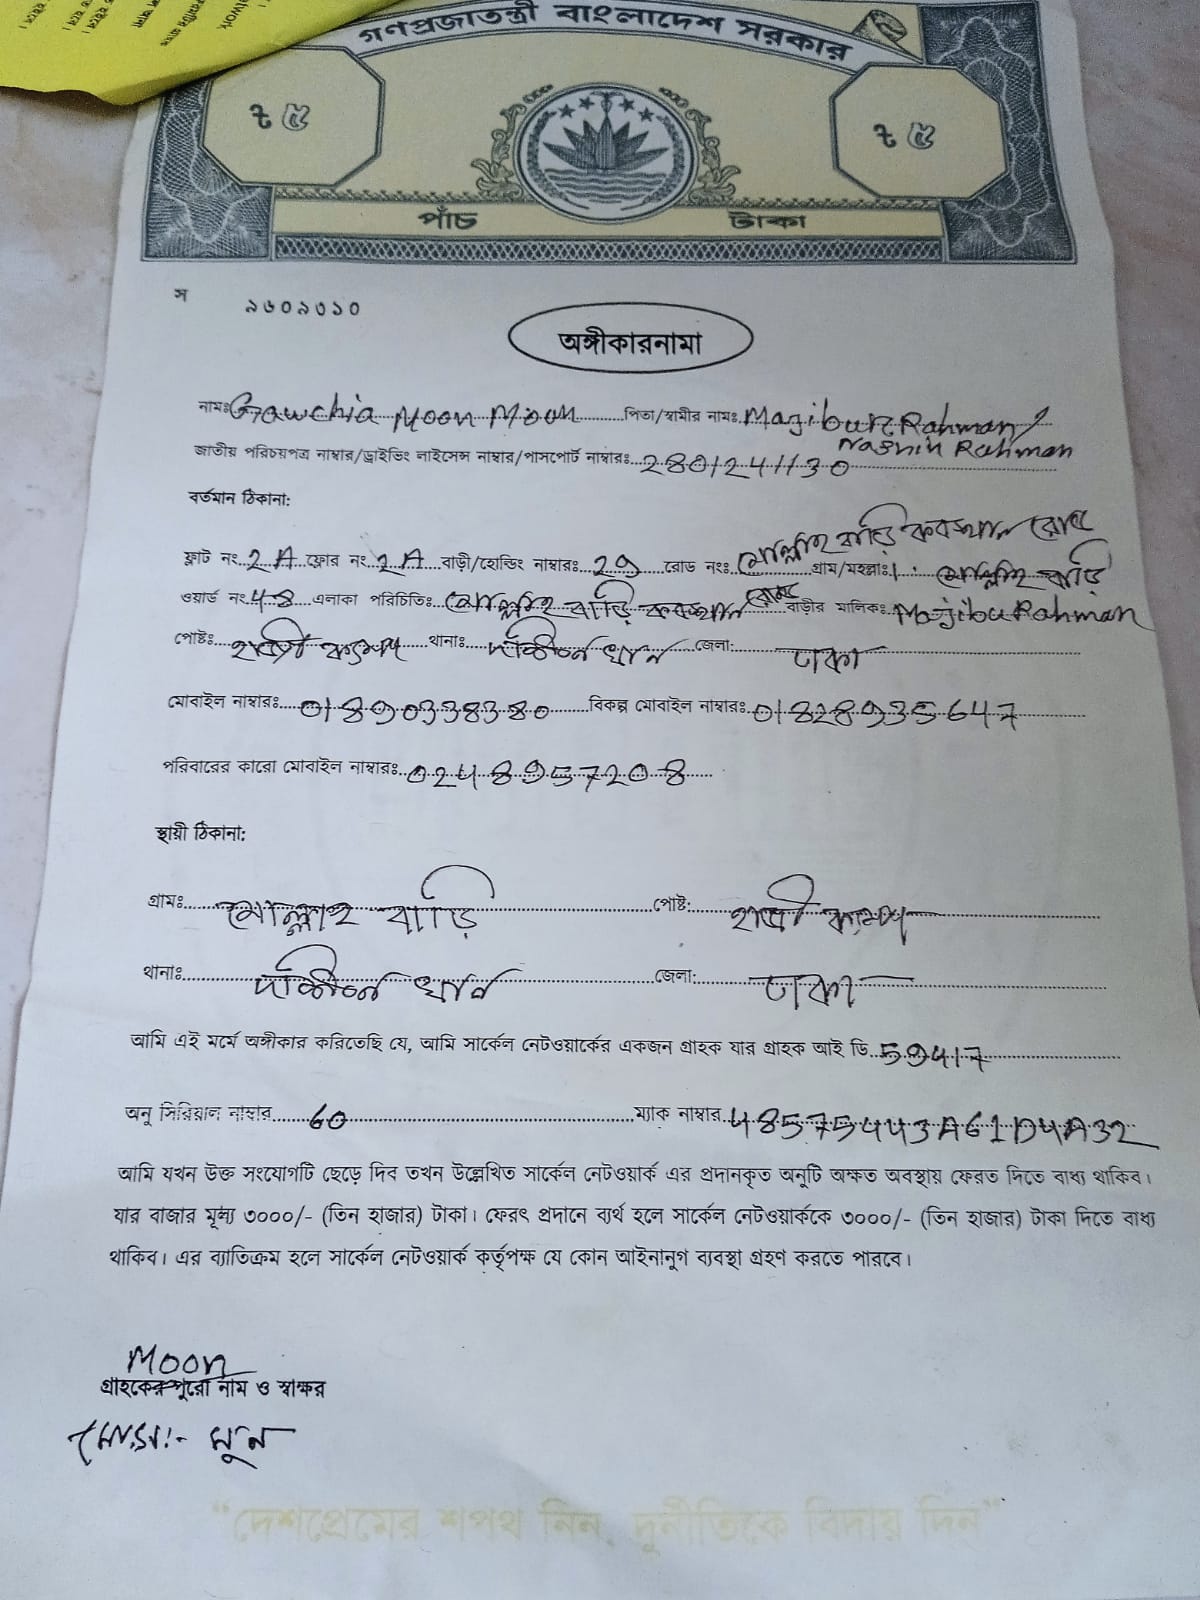 গণপ্রজাতন্ত্রী বাংলাদেশ সরকার
৳ ৫ ৳ ৫
পাঁচ টাকা
স ৯৬০৯৩১০
অঙ্গীকারনামা
নামঃ Gawchia Moon Moon পিতা/স্বামীর নামঃ Majibur Rahman/
Nasrin Rahman
জাতীয় পরিচয়পত্র নাম্বার/ড্রাইভিং লাইসেন্স নাম্বার/পাসপোর্ট নাম্বারঃ 2801241130
বর্তমান ঠিকানা:
ফ্লাট নং 2A ফ্লোর নং 2A বাড়ী/হোল্ডিং নাম্বারঃ 29 রোড নংঃ মোল্লার বাড়ি কবরস্থান রোড গ্রাম/মহল্লাঃ মোল্লার বাড়ি
ওয়ার্ড নং 48 এলাকা পরিচিতিঃ মোল্লার বাড়ি কবরস্থান রোড বাড়ীর মালিকঃ Majibu Rahman
পোষ্টঃ হাজী ক্যাম্প থানাঃ দক্ষিণ খান জেলা: ঢাকা
মোবাইল নাম্বারঃ 01890338380 বিকল্প মোবাইল নাম্বারঃ 01828935647
পরিবারের কারো মোবাইল নাম্বারঃ 0248957208
স্থায়ী ঠিকানা:
গ্রামঃ মোল্লার বাড়ি পোষ্ট: হাজী ক্যাম্প
থানাঃ দক্ষিণ খান জেলা: ঢাকা
আমি এই মর্মে অঙ্গীকার করিতেছি যে, আমি সার্কেল নেটওয়ার্কের একজন গ্রাহক যার গ্রাহক আই ডি 59417
অনু সিরিয়াল নাম্বার 60 ম্যাক নাম্বার 48575443A61D4A32
আমি যখন উক্ত সংযোগটি ছেড়ে দিব তখন উল্লেখিত সার্কেল নেটওয়ার্ক এর প্রদানকৃত অনুটি অক্ষত অবস্থায় ফেরত দিতে বাধ্য থাকিব।
যার বাজার মূল্য ৩০০০/- (তিন হাজার) টাকা। ফেরৎ প্রদানে ব্যর্থ হলে সার্কেল নেটওয়ার্ককে ৩০০০/- (তিন হাজার) টাকা দিতে বাধ্য
থাকিব। এর ব্যাতিক্রম হলে সার্কেল নেটওয়ার্ক কর্তৃপক্ষ যে কোন আইনানুগ ব্যবস্থা গ্রহণ করতে পারবে।
Moon
গ্রাহকের পুরো নাম ও স্বাক্ষর
মুন
“দেশপ্রেমের শপথ নিন, দুর্নীতিকে বিদায় দিন”